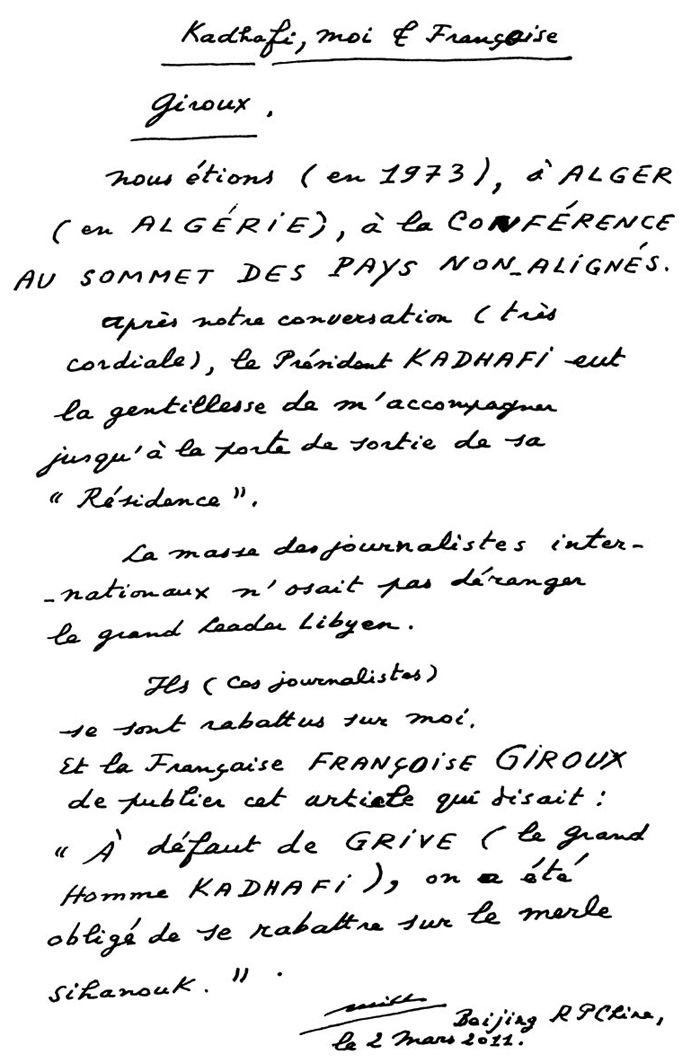 Kadhafi, moi & Françoise
Giroux.
nous étions (en 1973), à ALGER
(en ALGÉRIE), à la CONFÉRENCE
AU SOMMET DES PAYS NON-ALIGNÉS.
après notre conversation (très
cordiale), le Président KADHAFI eut
la gentillesse de m'accompagner
jusqu'à la porte de sortie de sa
"Résidence".
La masse des journalistes inter-
-nationaux n'osait pas déranger
le grand Leader Libyen.
Ils (ces journalistes)
se sont rabattus sur moi.
Et la Française FRANÇOISE GIROUX
de publier cet article qui disait :
"À défaut de GRIVE (le grand
Homme KADHAFI), on a été
obligé de se rabattre sur le merle
Sihanouk.".
Beijing R P China,
le 2 Mars 2011.